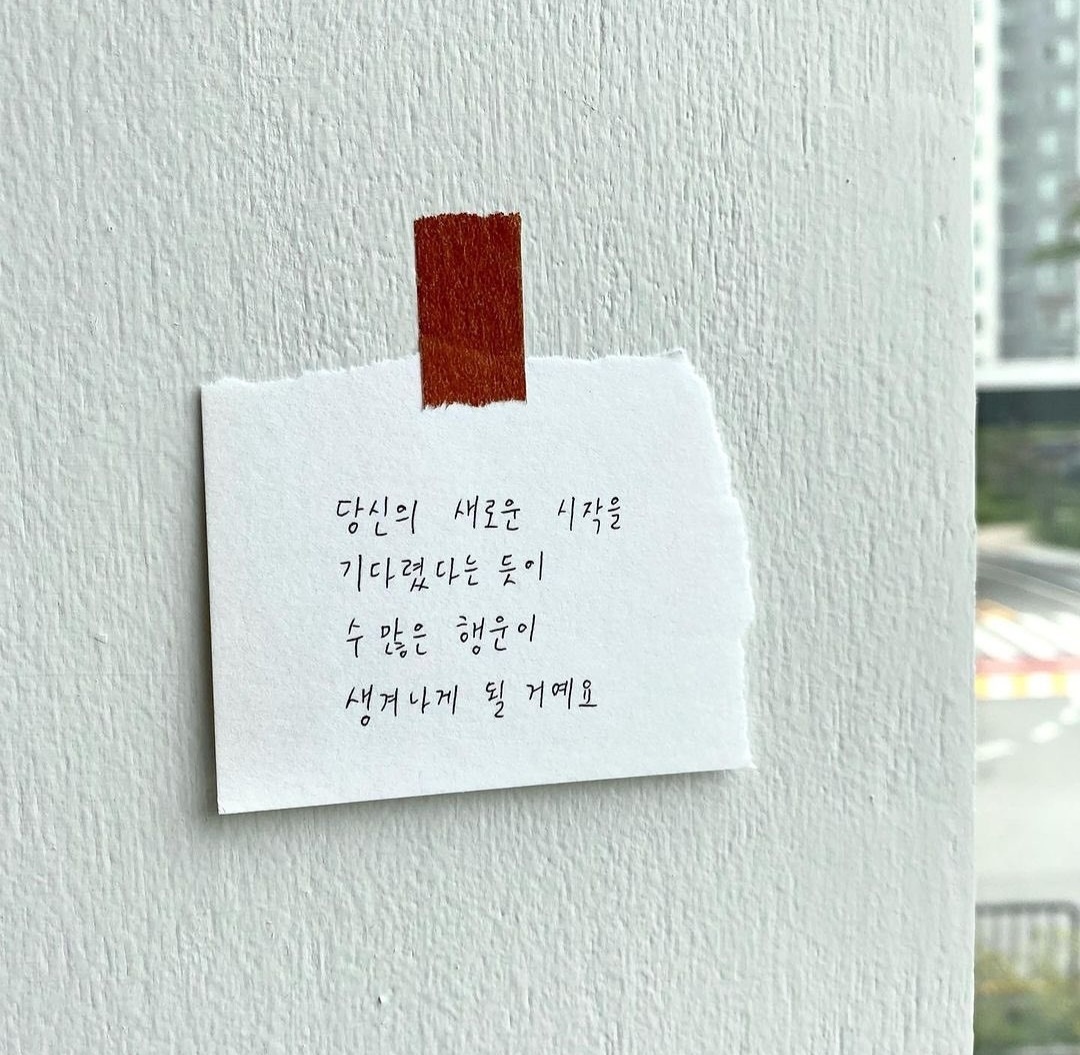 당신의 새로운 시작을
기다렸다는 듯이
수 많은 행운이
생겨나게 될 거예요